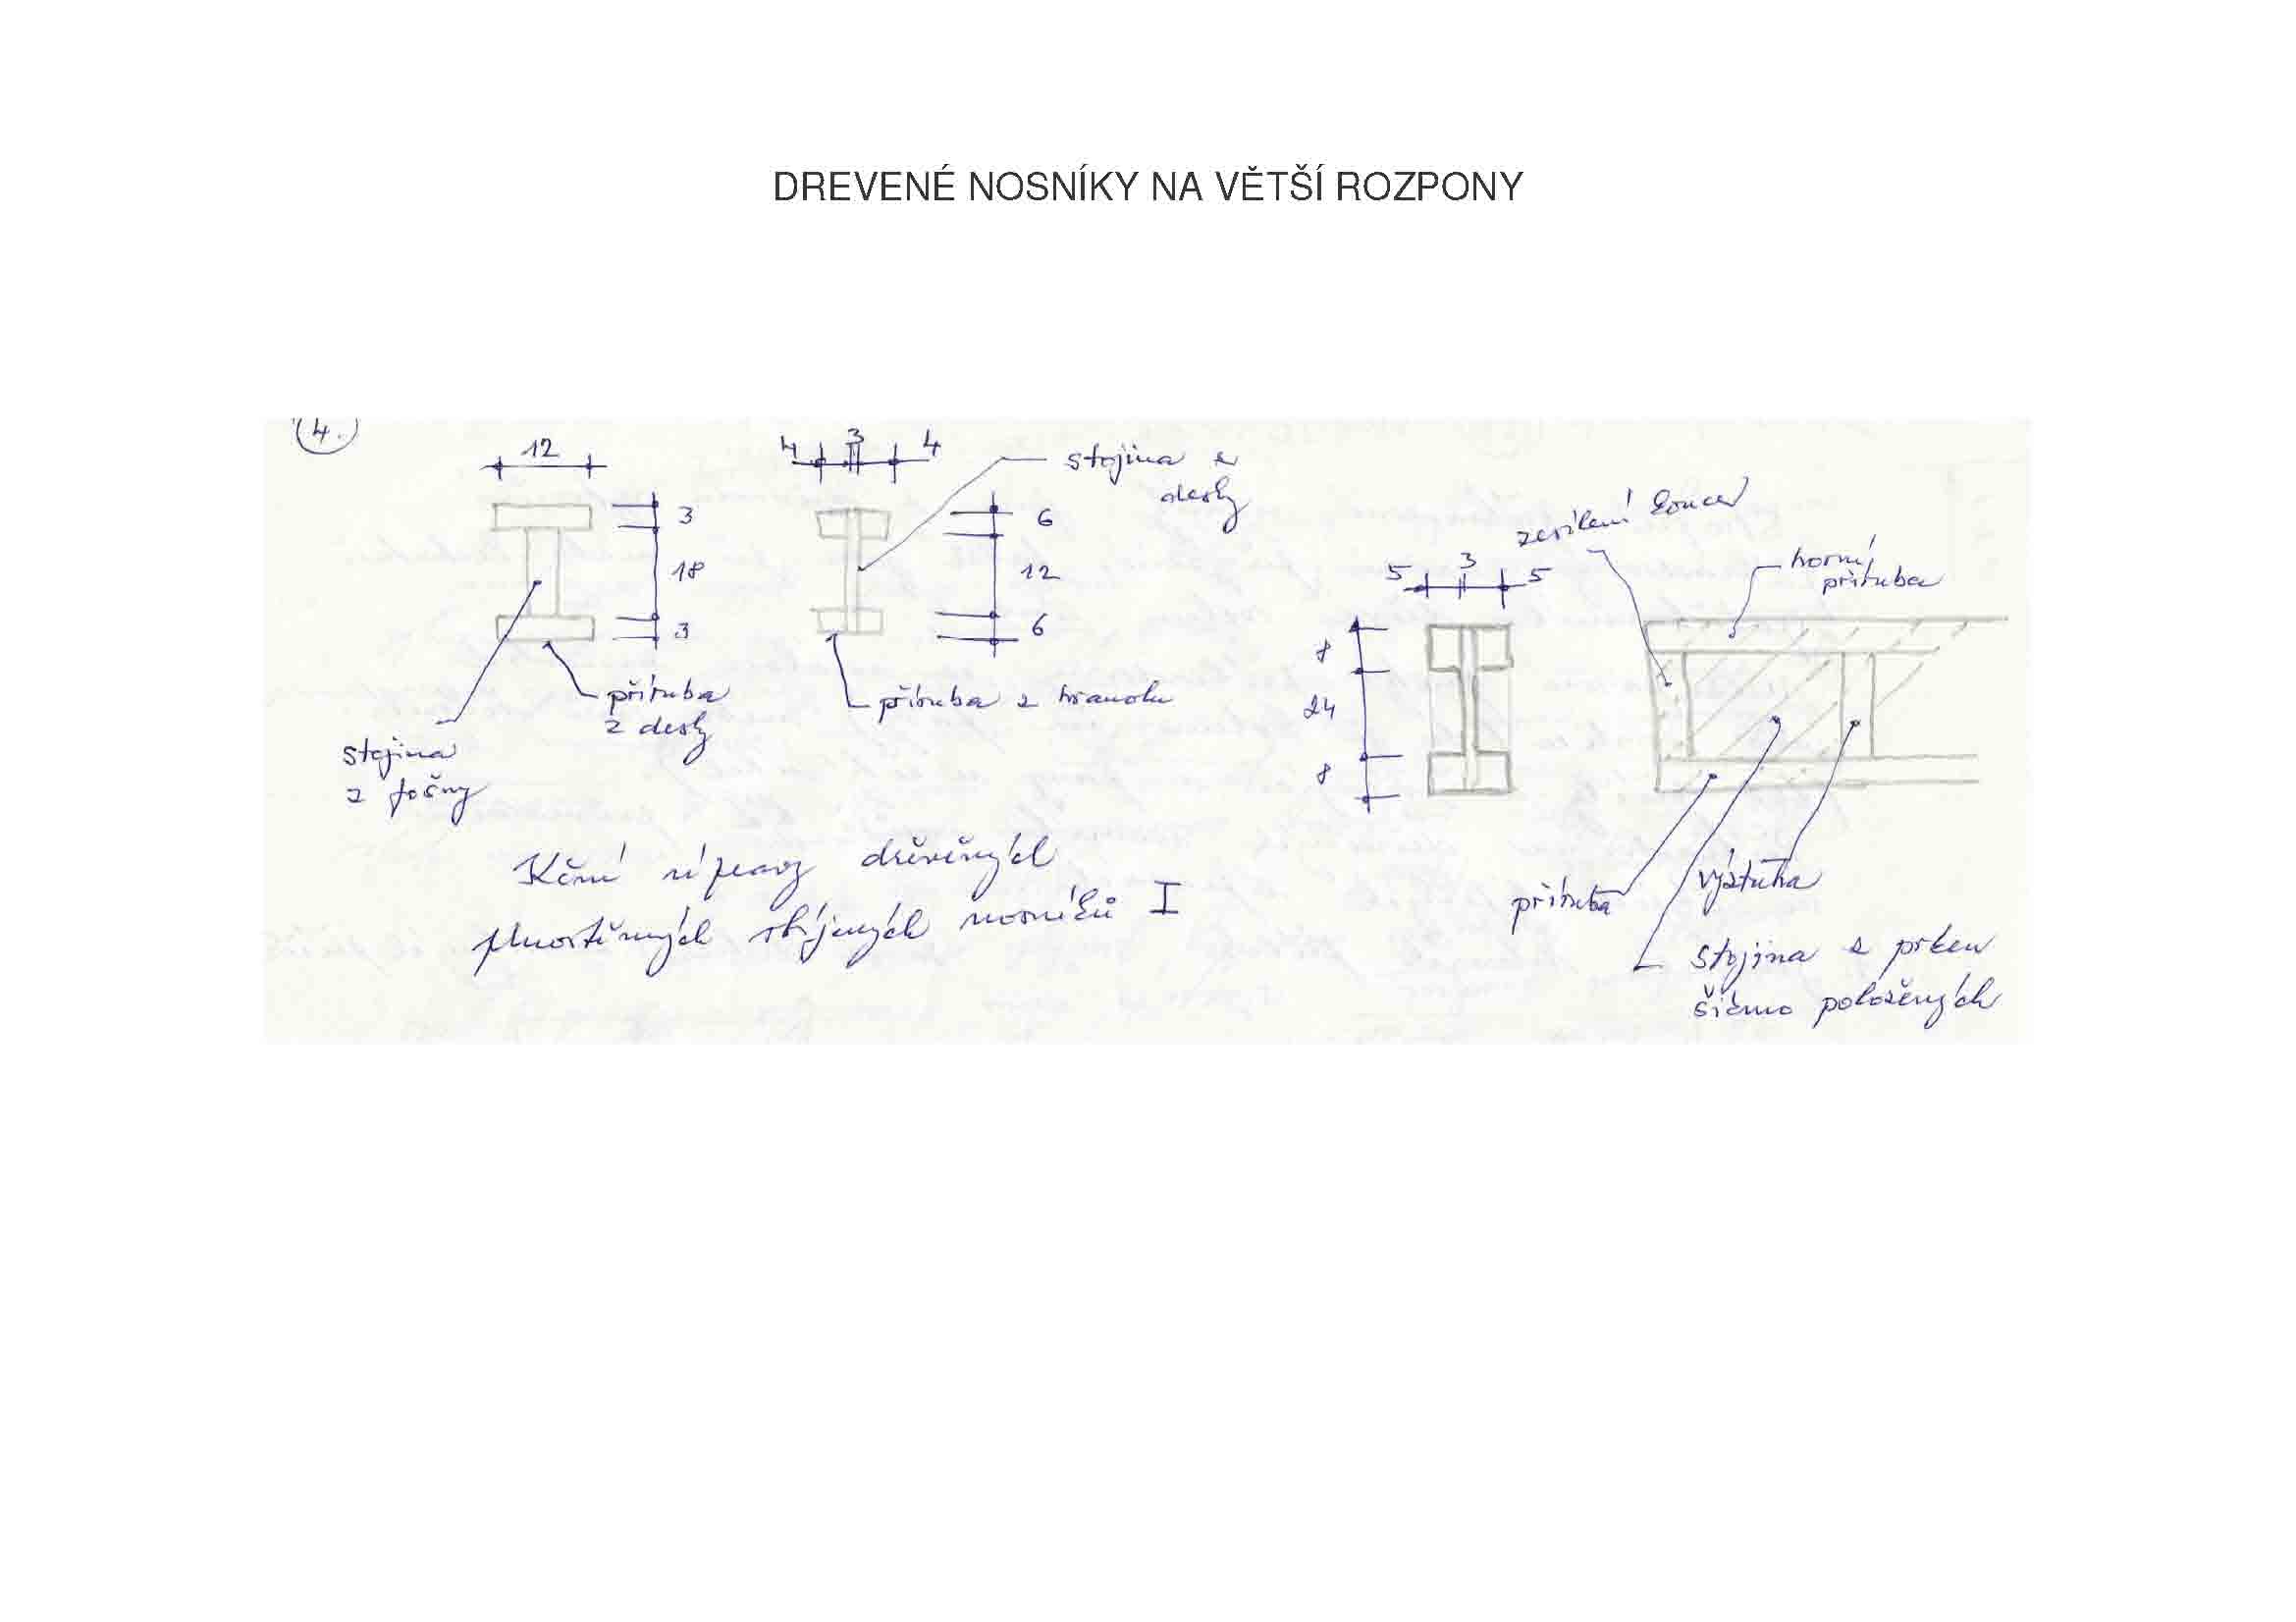 DREVENÉ NOSNÍKY NA VĚTŠÍ ROZPONY
4.
12
3
18
3
příruba
z desky
stojina
z fošny
4 3 4
stojina z
desky
6
12
6
příruba z hranolu
5 3 5
8
24
8
zesílení konce
horní
příruba
příruba
výztuha
stojina z prken
šikmo položených
úpravy dřevěných
plnostěnných sbíjených nosníků I